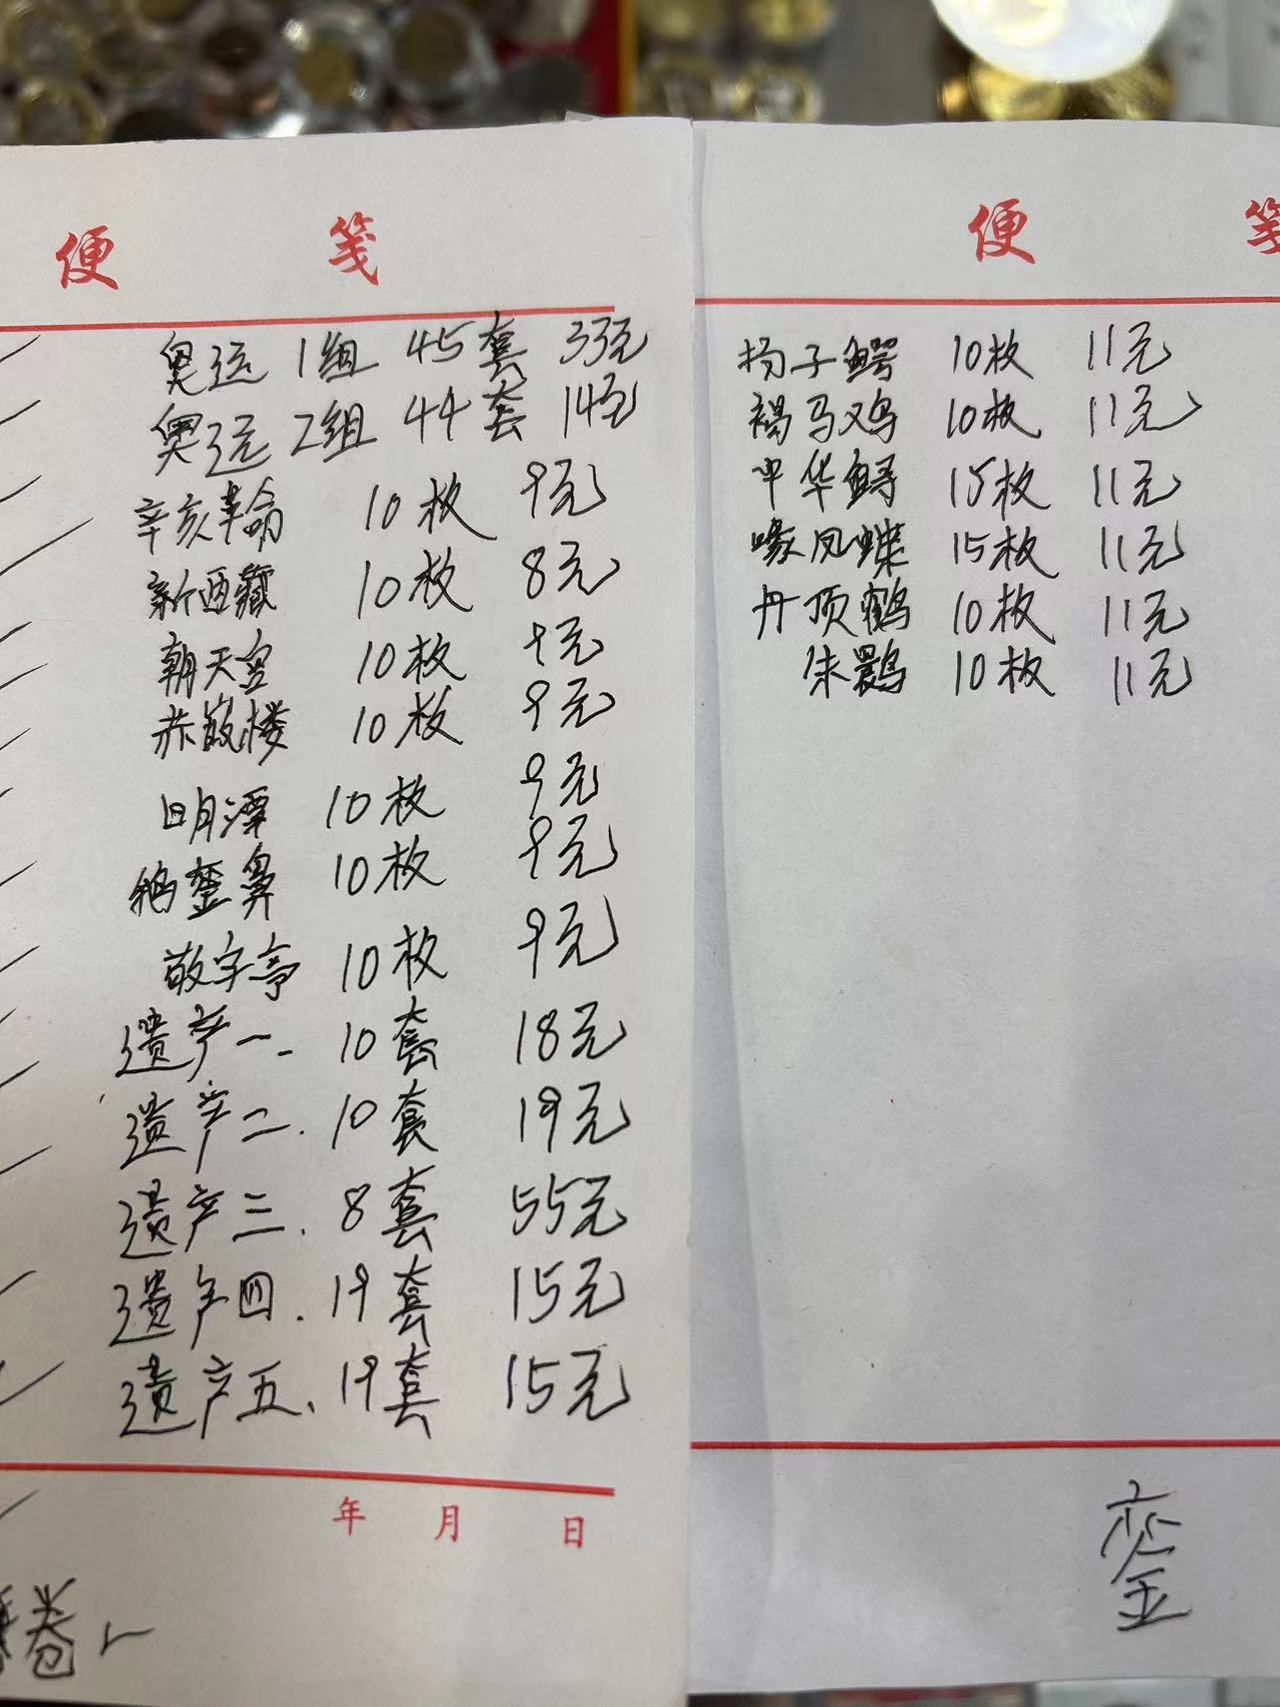 便 笺
奥运 1组 45套 33元
奥运 2组 44套 14元
辛亥革命 10枚 9元
新西藏 10枚 8元
朝天宫 10枚 9元
赤嵌楼 10枚 9元
日月潭 10枚 9元
鹅銮鼻 10枚 9元
敬字亭 10枚 9元
遗产一. 10套 18元
遗产二. 10套 19元
遗产三. 8套 55元
遗产四. 19套 15元
遗产五、19套 15元
年 月 日
卷
便 笺
扬子鳄 10枚 11元
褐马鸡 10枚 11元
中华鲟 15枚 11元
喙凤蝶 15枚 11元
丹顶鹤 10枚 11元
朱鹮 10枚 11元
銮